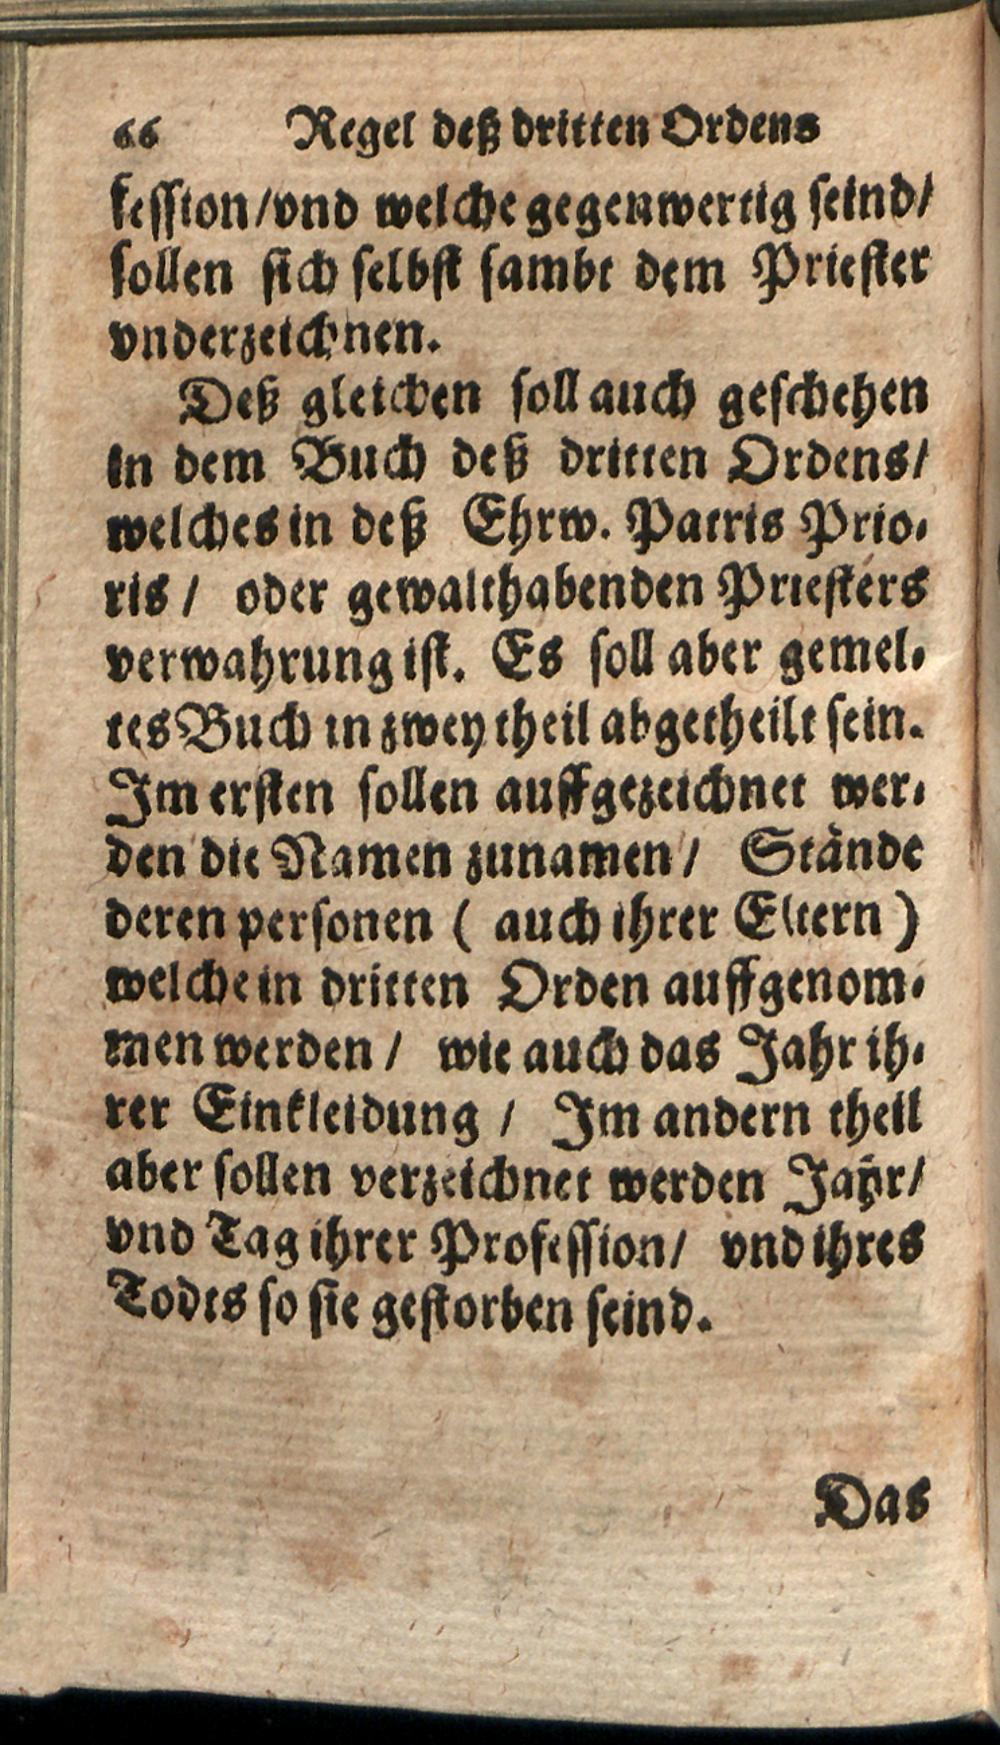 66 Regel deß dritten Ordens
fession/vnd welche gegenwertig seind/
sollen sich selbst sambt dem Priester
vnderzeichnen.
Deß gleichen soll auch geschehen
in dem Buch deß dritten Ordens/
welches in deß Ehrw. Patris Prio-
ris / oder gewalthabenden Priesters
verwahrung ist. Es soll aber gemel-
tes Buch in zwey theil abgetheilt sein.
Im ersten sollen auffgezeichnet wer-
den die Namen zunamen / Stände
deren personen ( auch ihrer Eltern )
welche in dritten Orden auffgenom-
men werden / wie auch das Jahr ih-
rer Einkleidung / Im andern theil
aber sollen verzeichnet werden Jahr/
vnd Tag ihrer Profession/ vnd ihres
Todes so sie gestorben seind.
Das